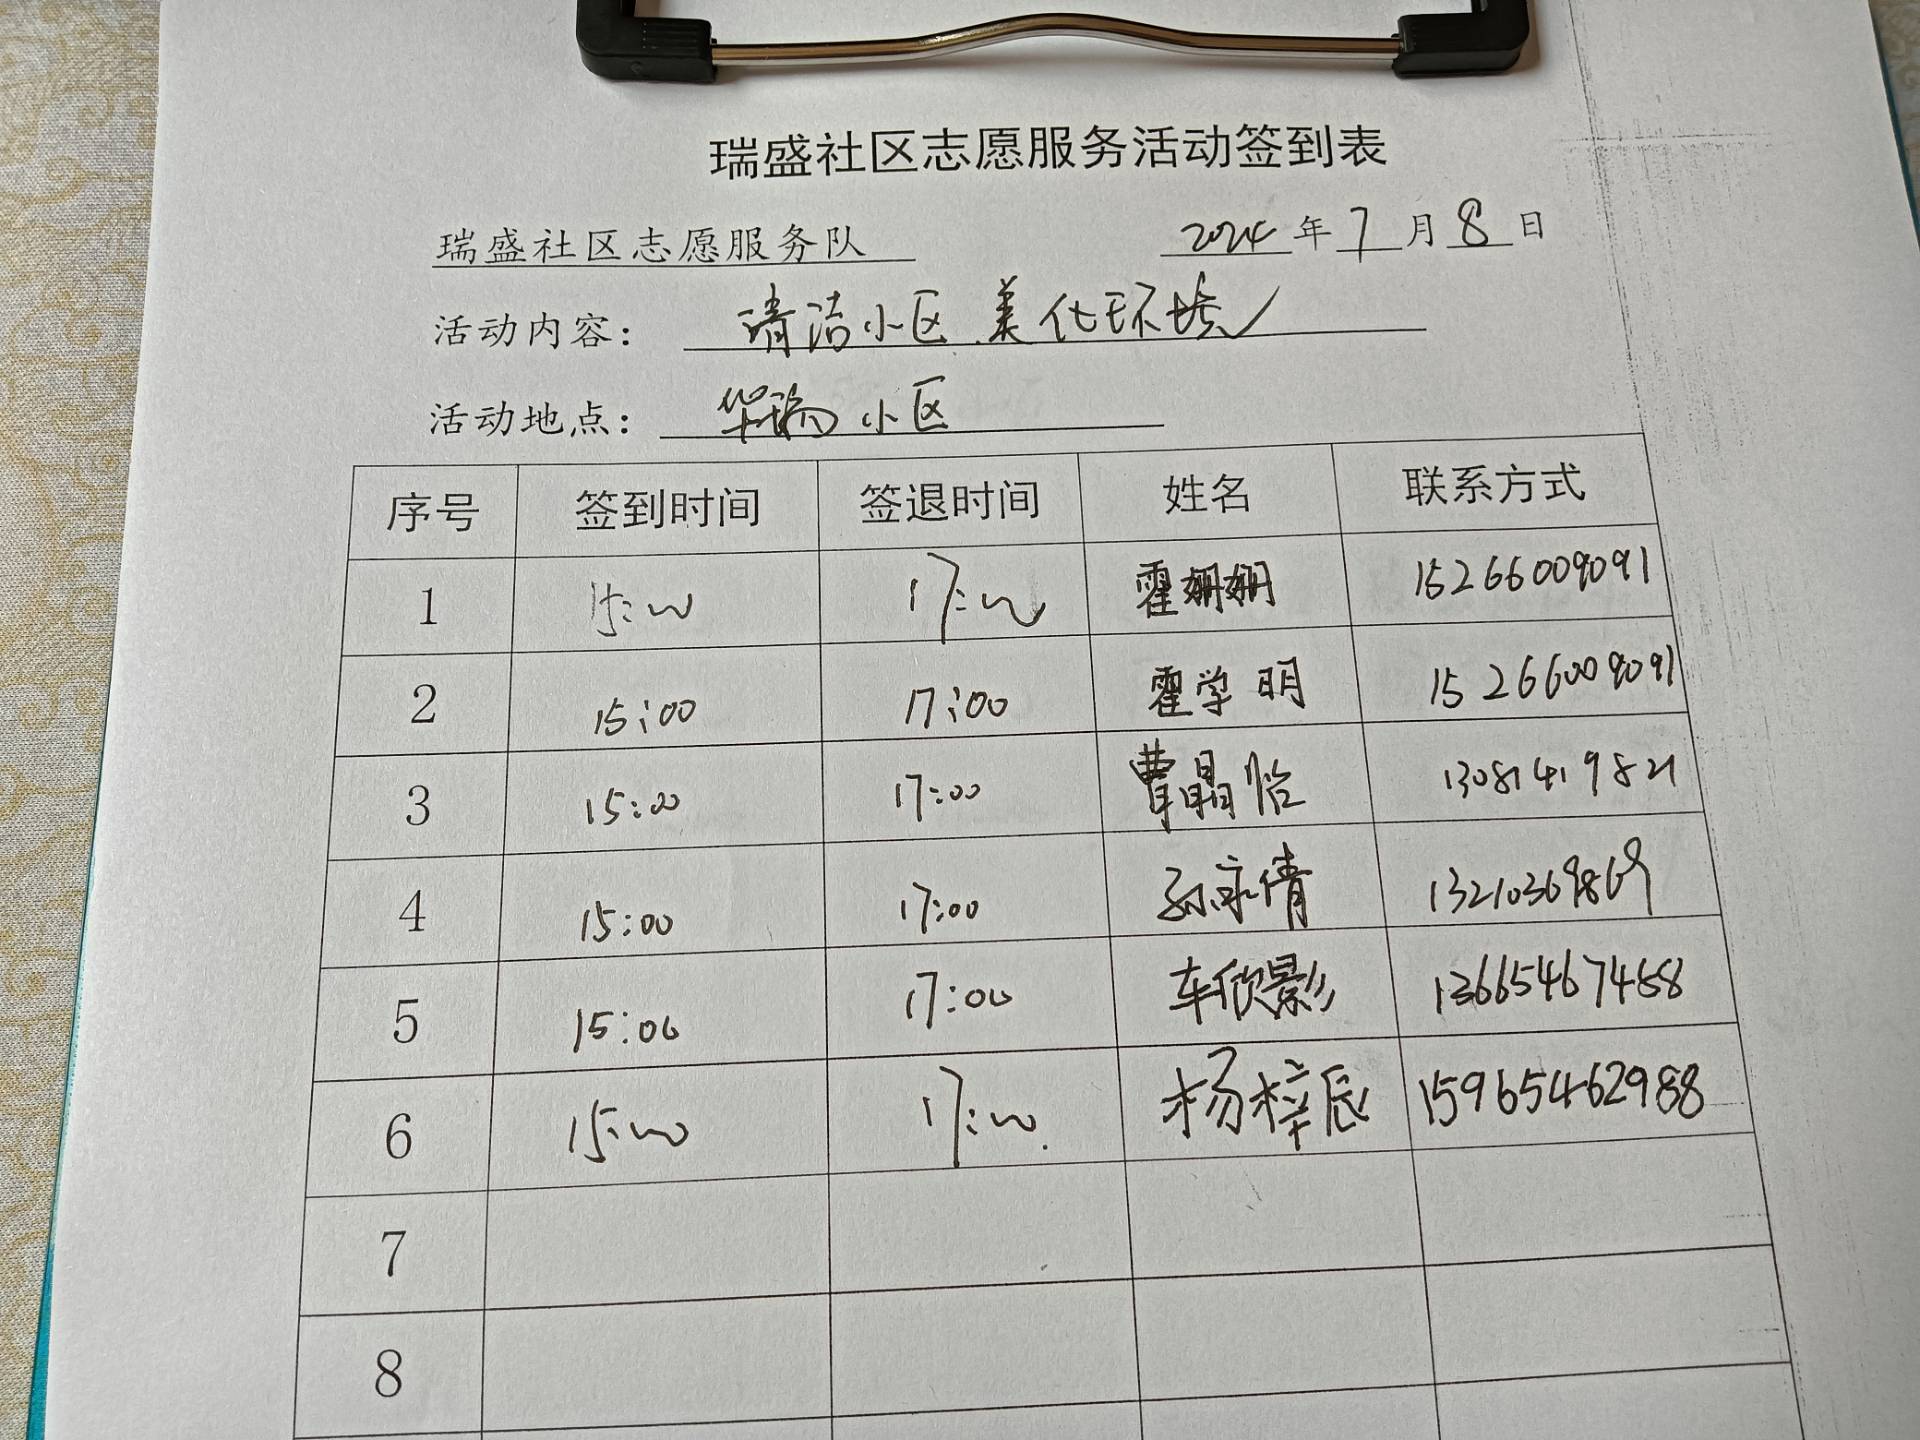 瑞盛社区志愿服务活动签到表
瑞盛社区志愿服务队 2024年7月8日
活动内容: 清洁小区 美化环境
活动地点: 华瑞小区
序号 签到时间 签退时间 姓名 联系方式
1 15:00 17:00 霍姗姗 15266009091
2 15:00 17:00 霍学明 15266009091
3 15:00 17:00 曹晶怡 13081419821
4 15:00 17:00 孙永倩 13210369869
5 15:00 17:00 车欣影 13665467488
6 15:00 17:00 杨梓辰 15965462988
7
8